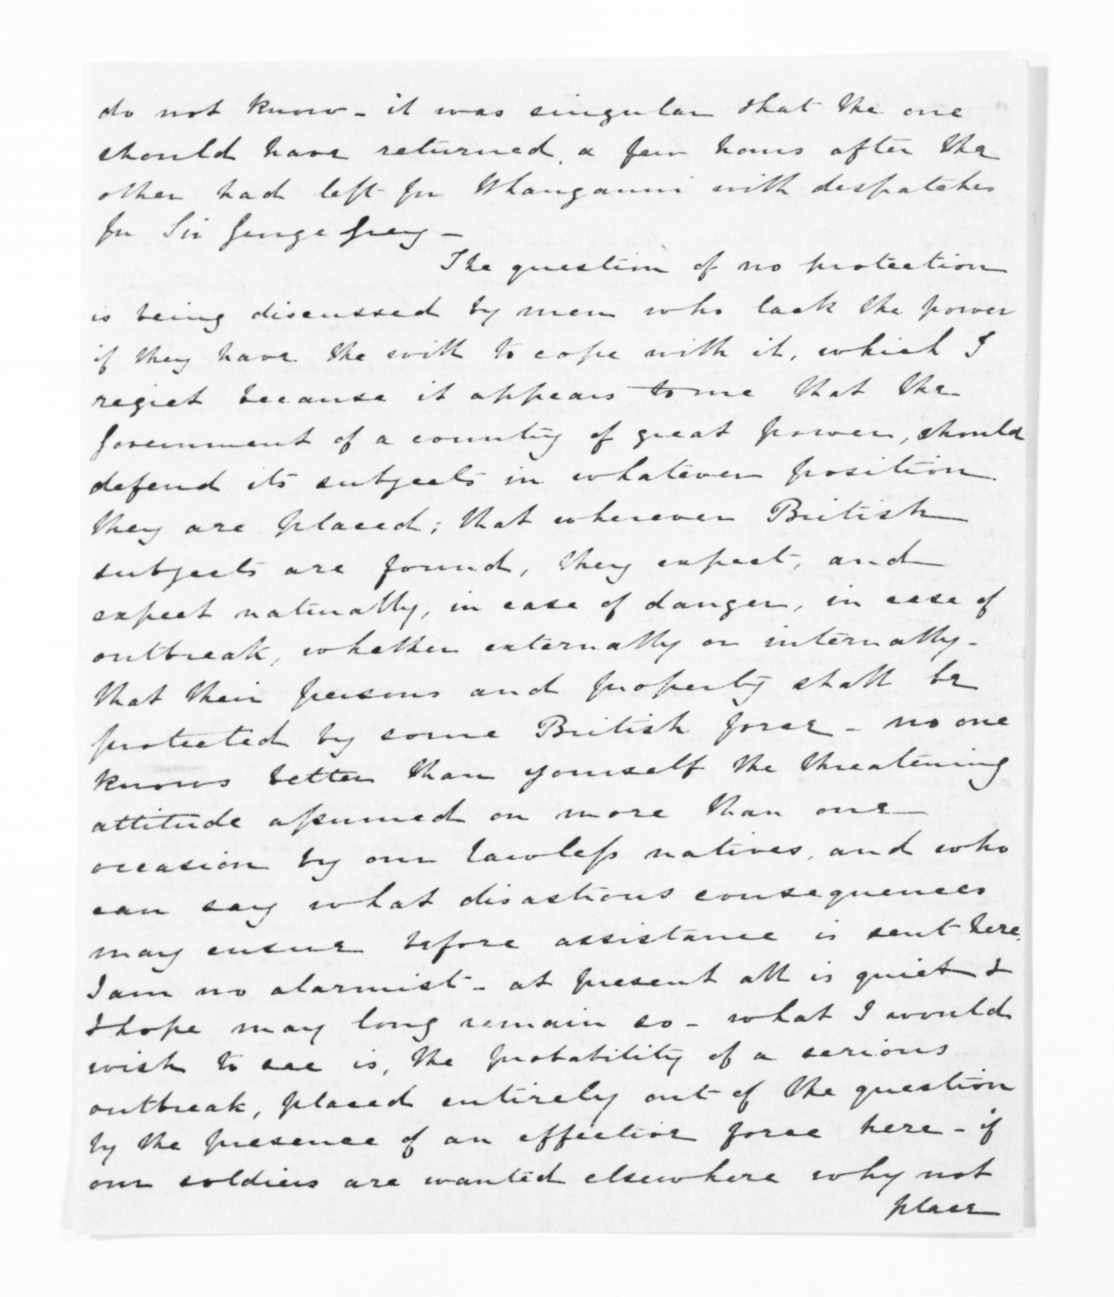 do not know - it was singular that the one
should have returned, a few hours after the
other had left for Whanganui with despatches
for Sir George Grey -
The question of no protection
is being discussed by men who lack the power
if they have the will to cope with it, which I
regret because it appears to me that the
Government of a country of great power, should
defend its subjects in whatever position
they are placed; that wherever British
subjects are found, they expect, and
expect naturally, in case of danger, in case of
outbreak, whether externally or internally -
that their persons and property shall be
protected by some British force - no one
knows better than yourself the threatening
attitude assumed on more than one
occasion by our lawless natives, and who
can say what disastrous consequences
may ensue before assistance is sent here.
I am no alarmist - at present all is quiet &
I hope may long remain so - what I would
wish to see is, the probability of a serious
outbreak, placed entirely out of the question
by the presence of an effective force here - if
our soldiers are wanted elsewhere why not
place